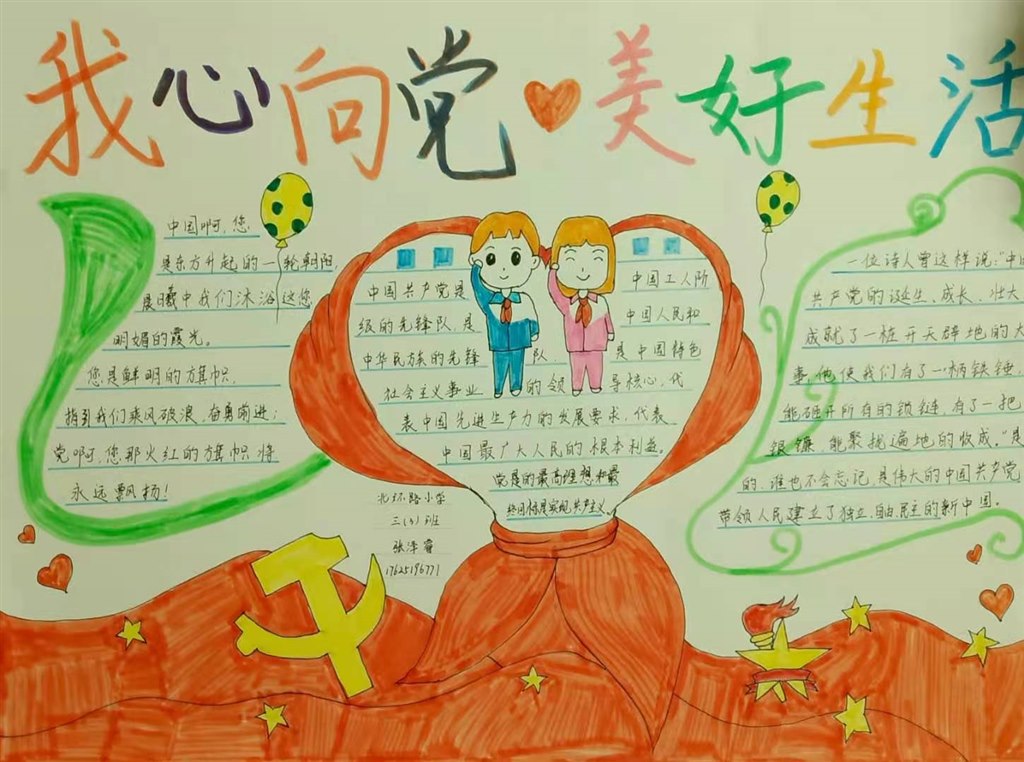 我心向党 美好生活
中国啊,您
是东方升起的一轮朝阳,
晨曦中我们沐浴这您
明媚的霞光。
您是鲜明的方旗帜,
指到我们乘风破浪、奋勇前进;
党啊,您那火红的方旗帜将
永远飘扬!
中国共产党是 中国工人阶
级的先锋队,是 中国人民和
中华民族的先锋 队, 是中国特色
社会主义事业 的领 导核心,代
表中国先进生产力的发展要求,代表
中国最广大人民的根本利益。
党是的最高理想和最
终目标是实现共产主义。
北环路小学
三(3)班
张泽睿
17625196771
一位诗人曾这样说:“中国
共产党的诞生、成长、壮大
成就了一桩开天辟地的大
事,他使我们有了一柄铁锤,
能砸开所有的锁链,有了一把
银镰,能聚拢遍地的收成。”是
的,谁也不会忘记,是伟大的中国共产党
带领人民建立了独立、自由、民主的新中国。